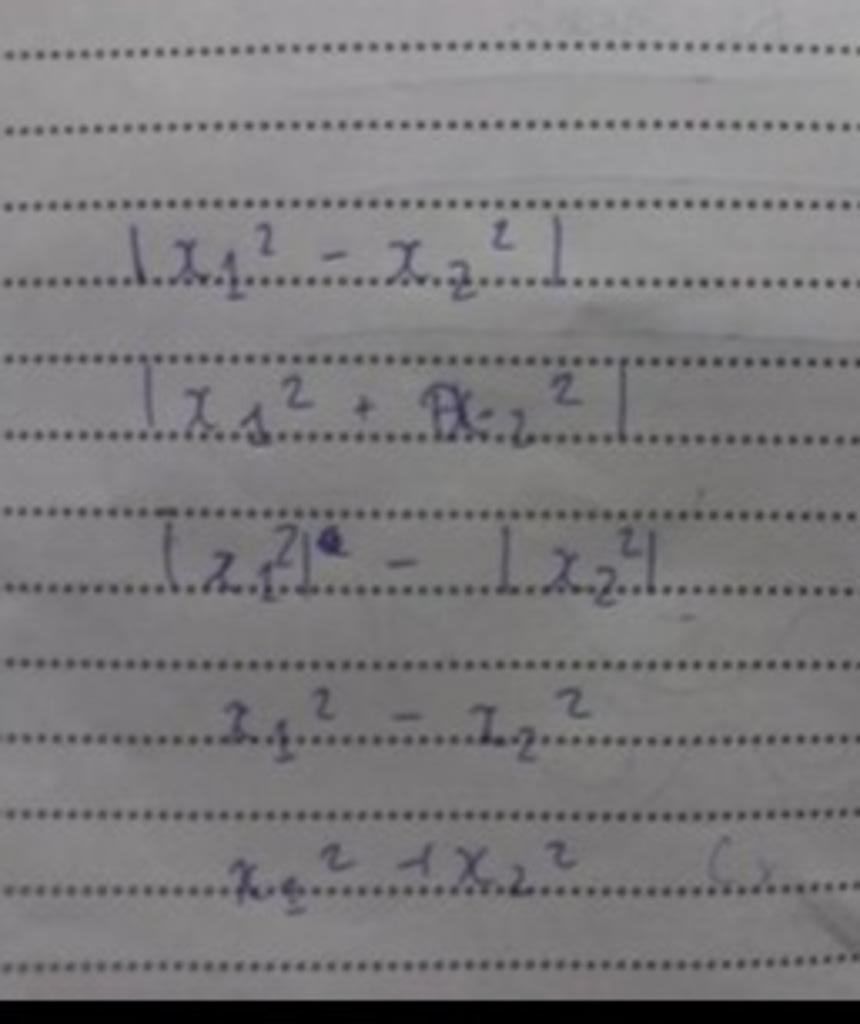 |x₁² - x₂²|
|x₁² + x₂²|
|x₁²| - |x₂²|
x₁² - x₂²
x₁² + x₂²